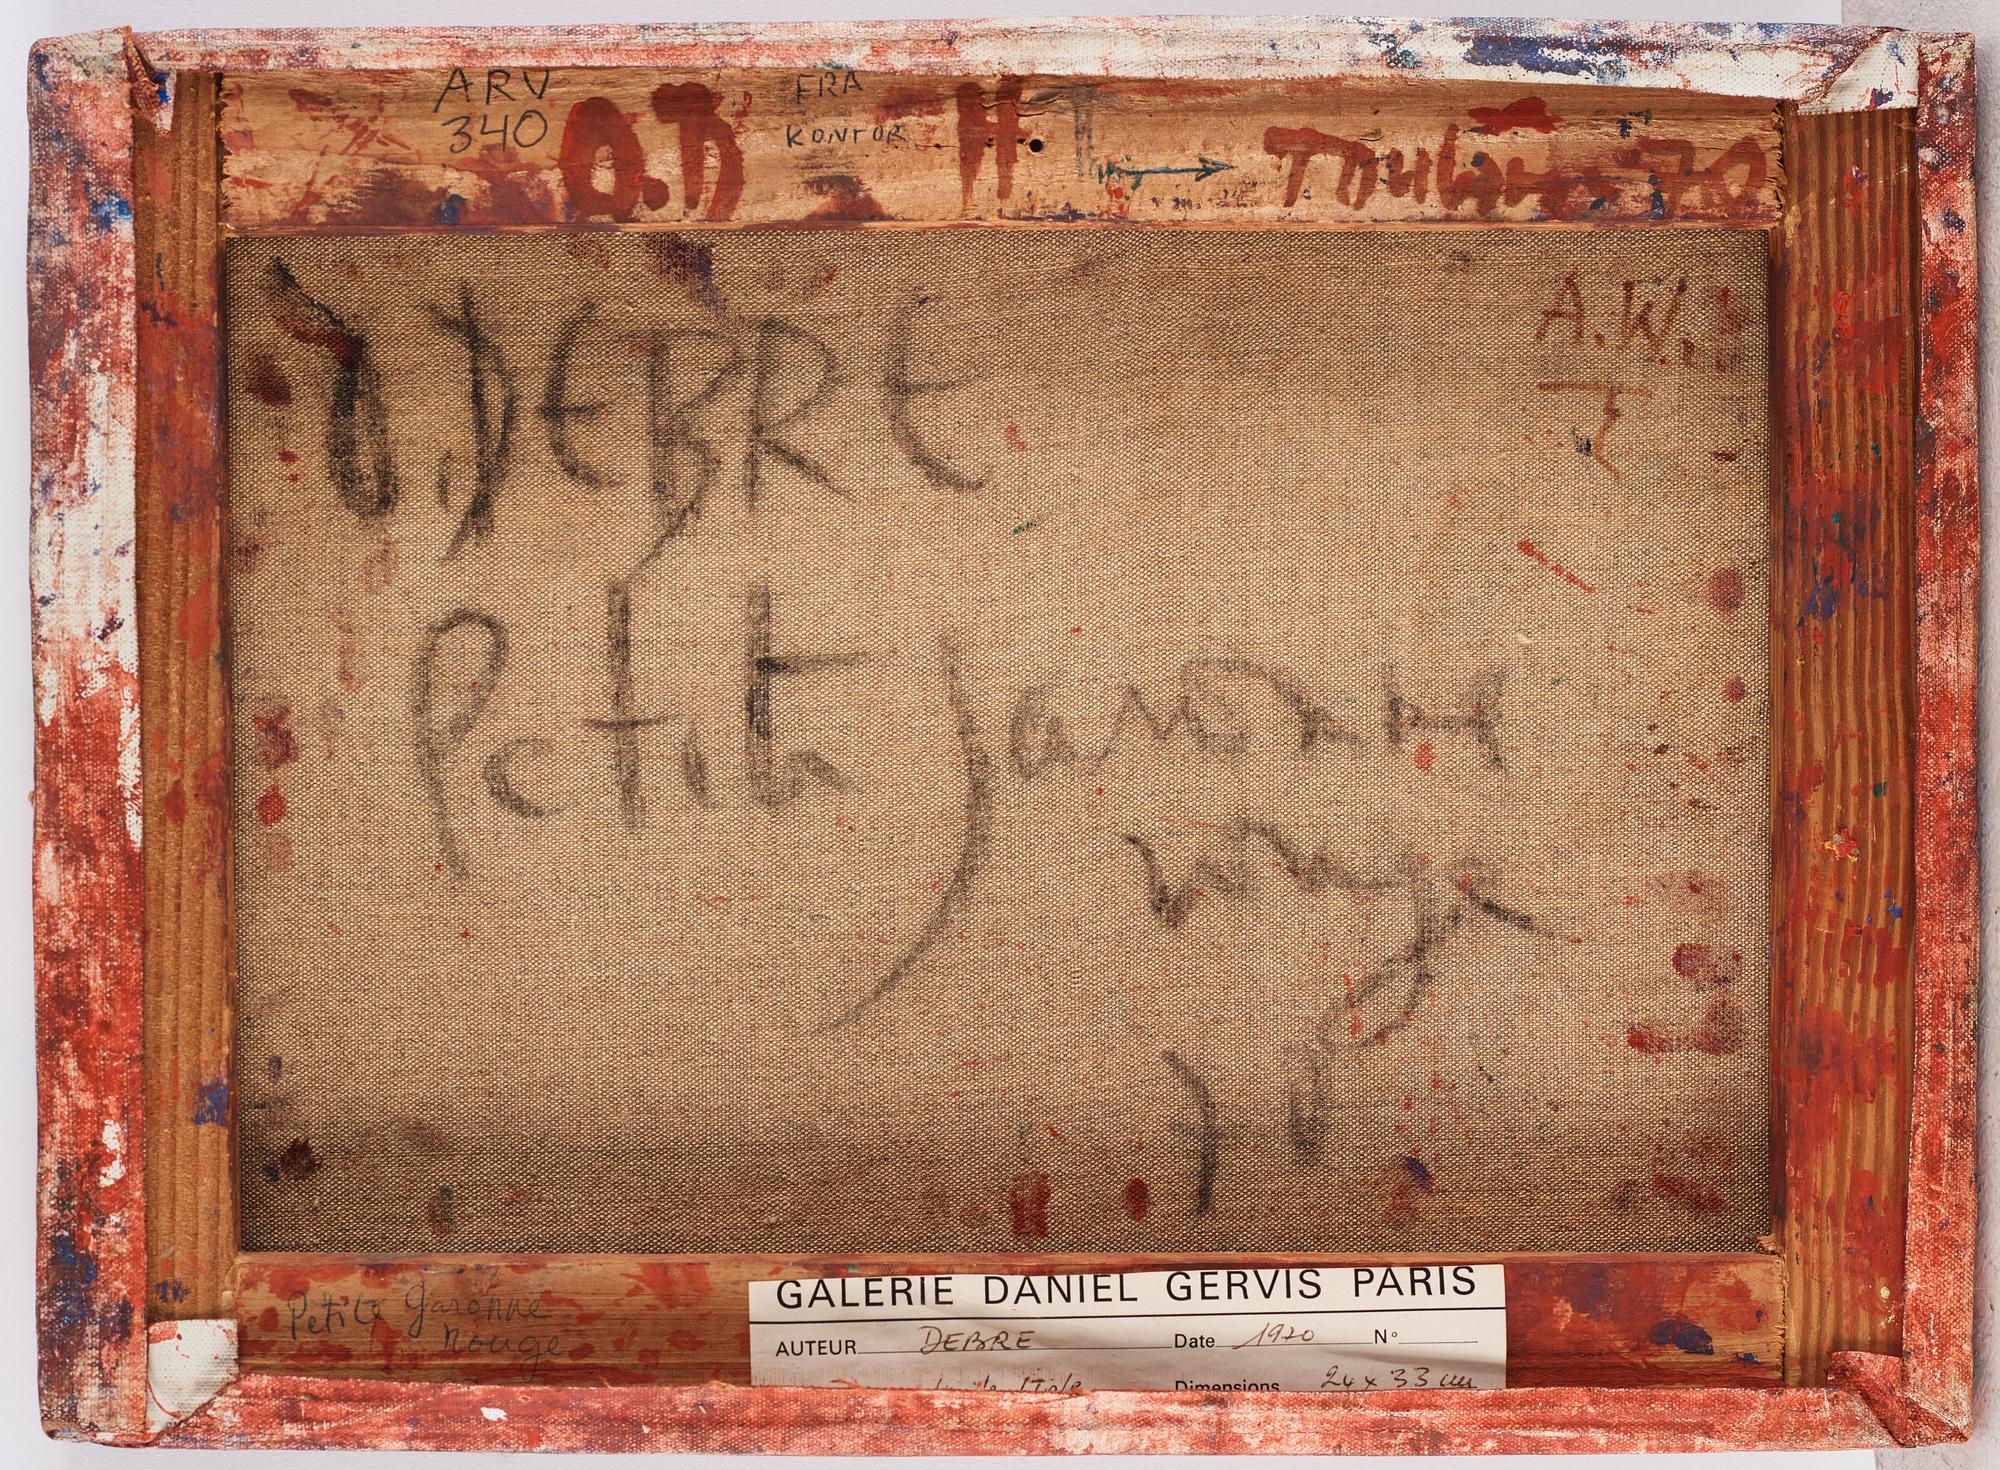 ARV
340
O.D
FRA
KONTOR
H
70
O.DEBRE
A.W.
Petite garonne
rouge
70
Petite garonne
rouge
GALERIE DANIEL GERVIS PARIS
AUTEUR DEBRE Date 1970 N°
Dimensions 24 x 33 cm